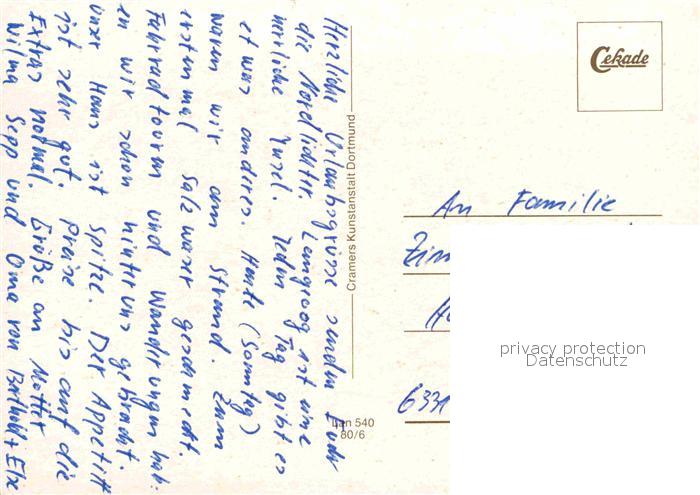 Herzliche Urlaubsgrüsse senden Euch
die Nordlichter. Langeoog ist eine
herrliche Insel. Jeden Tag gibt es
etwas anderes. Heute (Sonntag)
waren wir am Strand. Zum
erstenmal Salzwasser geschmeckt.
Fahrradtouren und Wanderungen hab-
en wir schon hinter uns gebracht.
unser Haus ist Spitze. Der Appetitt
ist sehr gut. Preise bis auf die
Extras normal. Grüße an Mutter
Wilma Sepp und Oma von Berthold + Else
Cramers Kunstanstalt Dortmund
Lan 540
80/6
Cekade
An Familie
Zim
633
privacy protection
Datenschutz